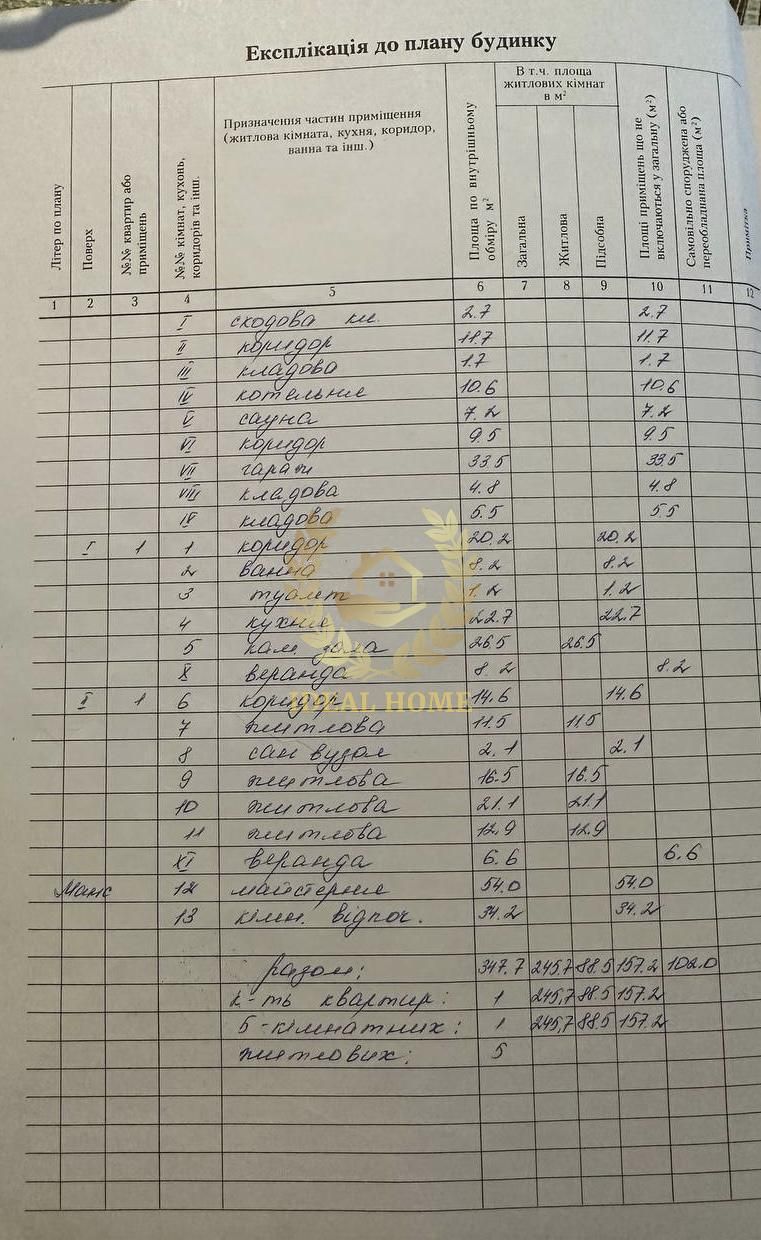 Експлікація до плану будинку
Літер по плану
Поверх
№№ квартир або приміщень
№№ кімнат, кухонь, коридорів та інш.
Призначення частин приміщення
(житлова кімната, кухня, коридор,
ванна та інш.)
Площа по внутрішньому обміру м²
В т.ч. площа
житлових кімнат
в м²
Загальна
Житлова
Підсобна
Площі приміщень що не включаються у загальну (м²)
Самовільно споруджена або переобладнана площа (м²)
Примітка
1 2 3 4 5 6 7 8 9 10 11 12
I сходова кл. 2.7 2.7
II коридор 11.7 11.7
III кладова 1.7 1.7
IV котельня 10.6 10.6
V сауна 7.2 7.2
VI коридор 9.5 9.5
VII гараж 33.5 33.5
VIII кладова 4.8 4.8
IX кладова 5.5 5.5
I 1 1 коридор 20.2 20.2
2 ванна 8.2 8.2
3 туалет 1.2 1.2
4 кухня 22.7 22.7
5 кам. зала 26.5 26.5
X веранда 8.2 8.2
II 1 6 коридор 14.6 14.6
7 житлова 11.5 11.5
8 сан вузол 2.1 2.1
9 житлова 16.5 16.5
10 житлова 21.1 21.1
11 житлова 12.9 12.9
XI веранда 6.6 6.6
Манс 12 майстерня 54.0 54.0
13 кімн. відпоч. 34.2 34.2
разом: 347.7 245.7 88.5 157.2 102.0
к-ть квартир: 1 245,7 88.5 157.2
5-кімнатних: 1 245,7 88.5 157.2
житлових: 5
IDEAL HOME